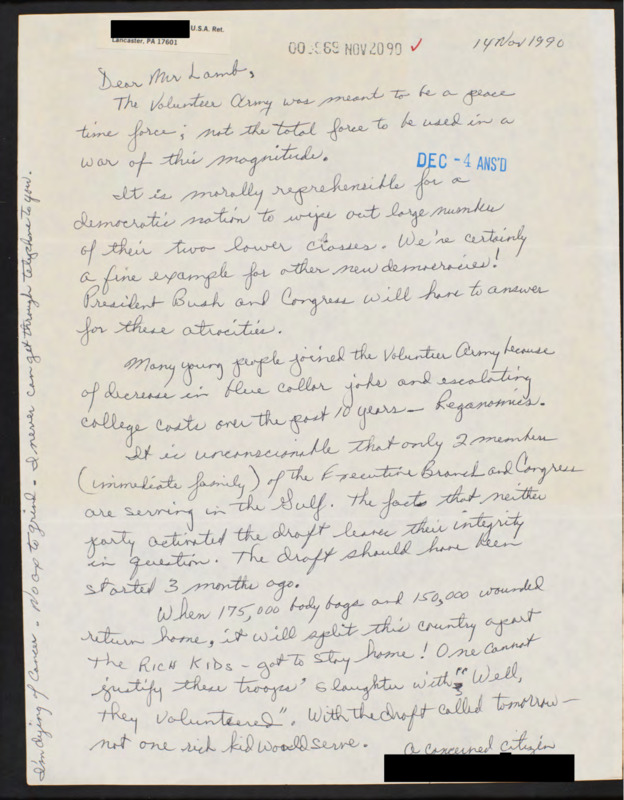 U.S.A. Ret.
Lancaster, PA 17601
NOV 20 90 ✓
14 Nov 1990
Dear Mr Lamb,
The Volunteer Army was meant to be a peace
time force; not the total force to be used in a
war of this magnitude.
DEC -4 ANS'D
It is morally reprehensible for a
democratic nation to wipe out large number
of their two lower classes. We're certainly
a fine example for other new democracies!
President Bush and Congress will have to answer
for these atrocities.
Many young people joined the Volunteer Army because
of decrease in blue collar jobs and escalating
college costs over the past 10 years — Reganomics.
It is unconscionable that only 2 members
(immediate family) of the Executive Branch and Congress
are serving in the Gulf. The facts that neither
party activated the draft leaves their integrity
in question. The draft should have been
started 3 months ago.
When 175,000 body bags and 150,000 wounded
return home, it will split this country apart
The RICH KIDS - got to stay home! One cannot
justify these troops' slaughter with " Well,
they volunteered". With the draft called tomorrow —
not one rich kid would serve.
a concerned citizen
I'm dying of Cancer - No ax to grind - I never can get through telephone to you.